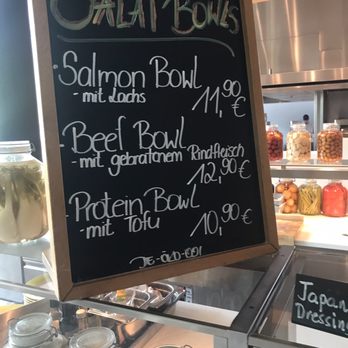 SALAT BOWLS
• Salmon Bowl
- mit Lachs
11,90 €
• Beef Bowl
- mit gebratenem Rindfleisch
12,90 €
• Protein Bowl
- mit Tofu
10,90 €
Japan
Dressing